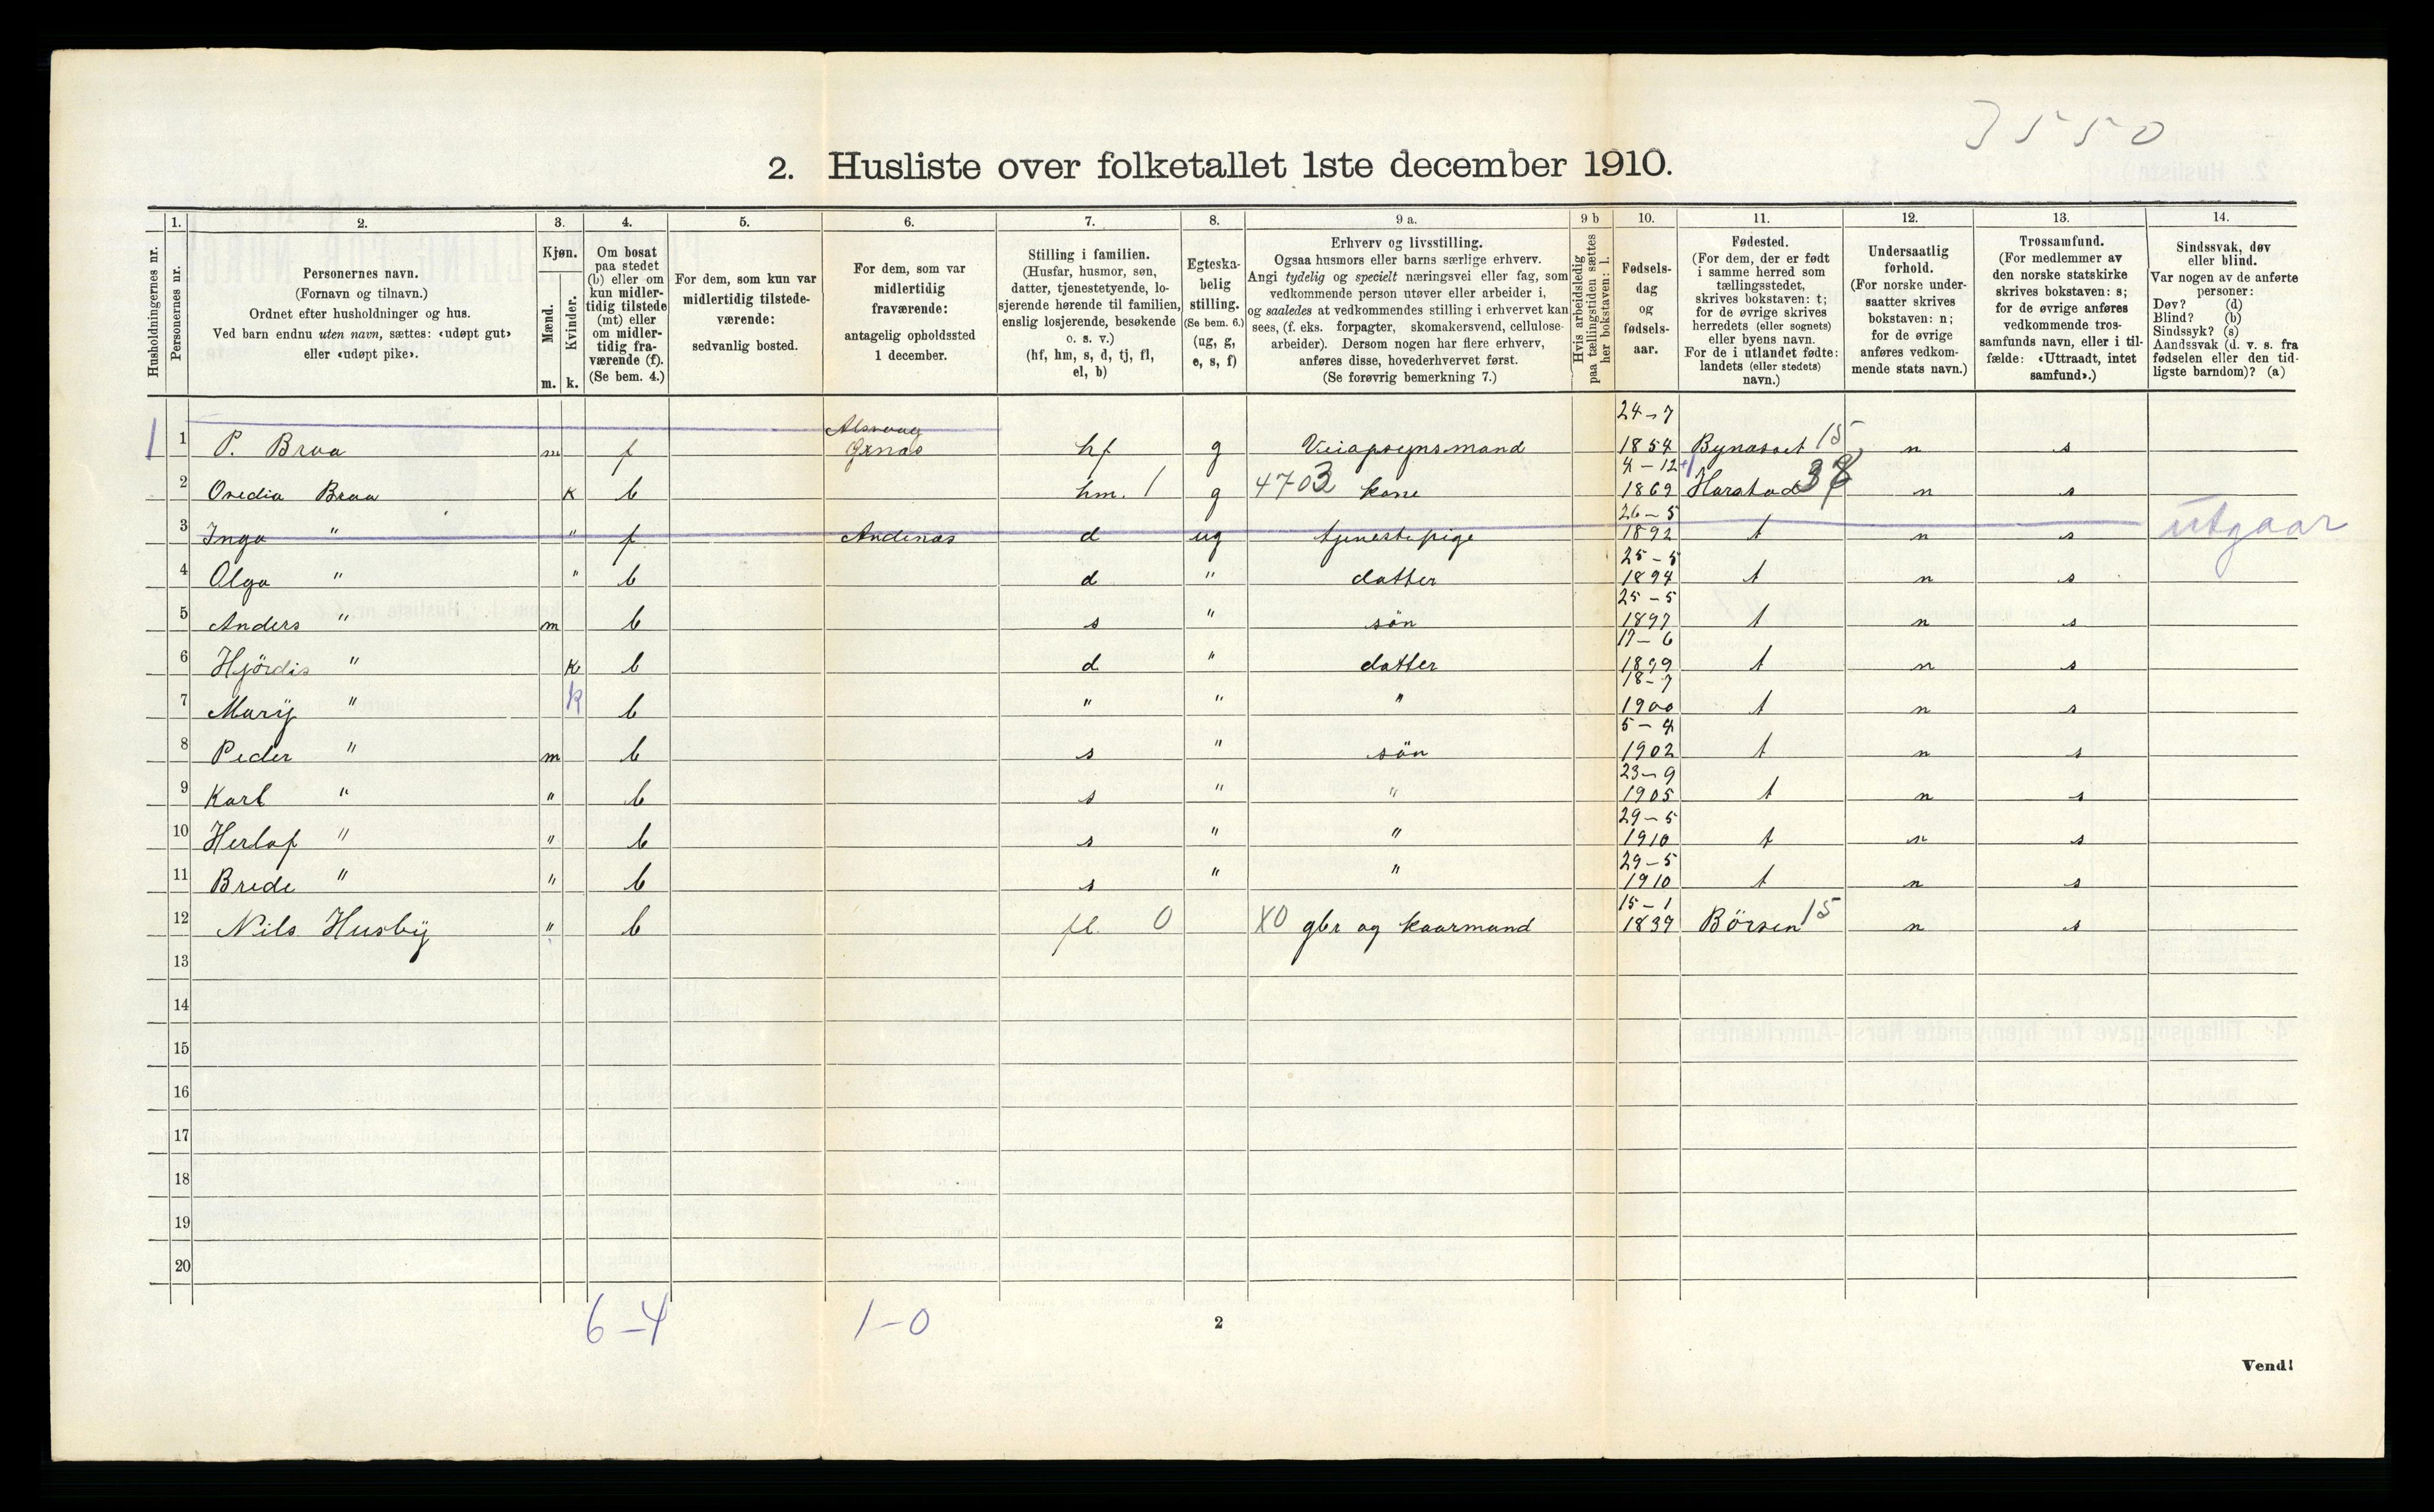 3550
2. Husliste over folketallet 1ste december 1910.
Husholdningernes nr.
1.
Personernes nr.
2.
Personernes navn.
(Fornavn og tilnavn.)
Ordnet efter husholdninger og hus.
Ved barn endnu uten navn, sættes: «udøpt gut»
eller «udøpt pike».
3.
Kjøn.
Mænd.
Kvinder.
m. k.
4.
Om bosat
paa stedet
(b) eller om
kun midler-
tidig tilstede
(mt) eller
om midler-
tidig fra-
værende (f).
(Se bem. 4.)
5.
For dem, som kun var
midlertidig tilstede-
værende:
sedvanlig bosted.
6.
For dem, som var
midlertidig
fraværende:
antagelig opholdssted
1 december.
7.
Stilling i familien.
(Husfar, husmor, søn,
datter, tjenestetyende, lo-
sjerende hørende til familien,
enslig losjerende, besøkende
o. s. v.)
(hf, hm, s, d, tj, fl,
el, b)
8.
Egteska-
belig
stilling.
(Se bem. 6.)
(ug, g,
e, s, f)
9 a.
Erhverv og livsstilling.
Ogsaa husmors eller barns særlige erhverv.
Angi tydelig og specielt næringsvei eller fag, som
vedkommende person utøver eller arbeider i,
og saaledes at vedkommendes stilling i erhvervet kan
sees, (f. eks. forpagter, skomakersvend, cellulose-
arbeider). Dersom nogen har flere erhverv,
anføres disse, hovederhvervet først.
(Se forøvrig bemerkning 7.)
9 b
Hvis arbeidsledig
paa tællingstiden sættes
her bokstaven: l.
10.
Fødsels-
dag
og
fødsels-
aar.
11.
Fødested.
(For dem, der er født
i samme herred som
tællingsstedet,
skrives bokstaven: t;
for de øvrige skrives
herredets (eller sognets)
eller byens navn.
For de i utlandet fødte:
landets (eller stedets)
navn.)
12.
Undersaatlig
forhold.
(For norske under-
saatter skrives
bokstaven: n;
for de øvrige
anføres vedkom-
mende stats navn.)
13.
Trossamfund.
(For medlemmer av
den norske statskirke
skrives bokstaven: s;
for de øvrige anføres
vedkommende tros-
samfunds navn, eller i til-
fælde: «Uttraadt, intet
samfund».)
14.
Sindssvak, døv
eller blind.
Var nogen av de anførte
personer:
Døv? (d)
Blind? (b)
Sindssyk? (s)
Aandssvak (d. v. s. fra
fødselen eller den tid-
ligste barndom)? (a)
1 1 P. Braa m f Alsvaag hf g Veiapsynsmand 24-7 1854 Bynæset 15 n s
2 Ovedia Braa k b hm. 1 g 4703 kone 4-12 1869 Harstad n s
3 Inga " " f Andenæs d ug tjenestepige 26-5 1892 t n s utgaar
4 Olga " " b d " datter 25-5 1894 t n s
5 Anders " m b s " sön 25-5 1897 t n s
6 Hjördis " k b d " datter 17-6 1899 t n s
7 Marij " k b " " " 18-7 1900 t n s
8 Peder " m b s " sön 5-4 1902 t n s
9 Karl " " b s " " 23-9 1905 t n s
10 Herlof " " b s " " 29-5 1910 t n s
11 Brede " " b s " " 29-5 1910 t n s
12 Nils Husby " b fl. 0 X0 gbr og kaarmand 15-1 1839 Börsen 15 n s
13
14
15
16
17
18
19
20
6-4 1-0
2
Vend!